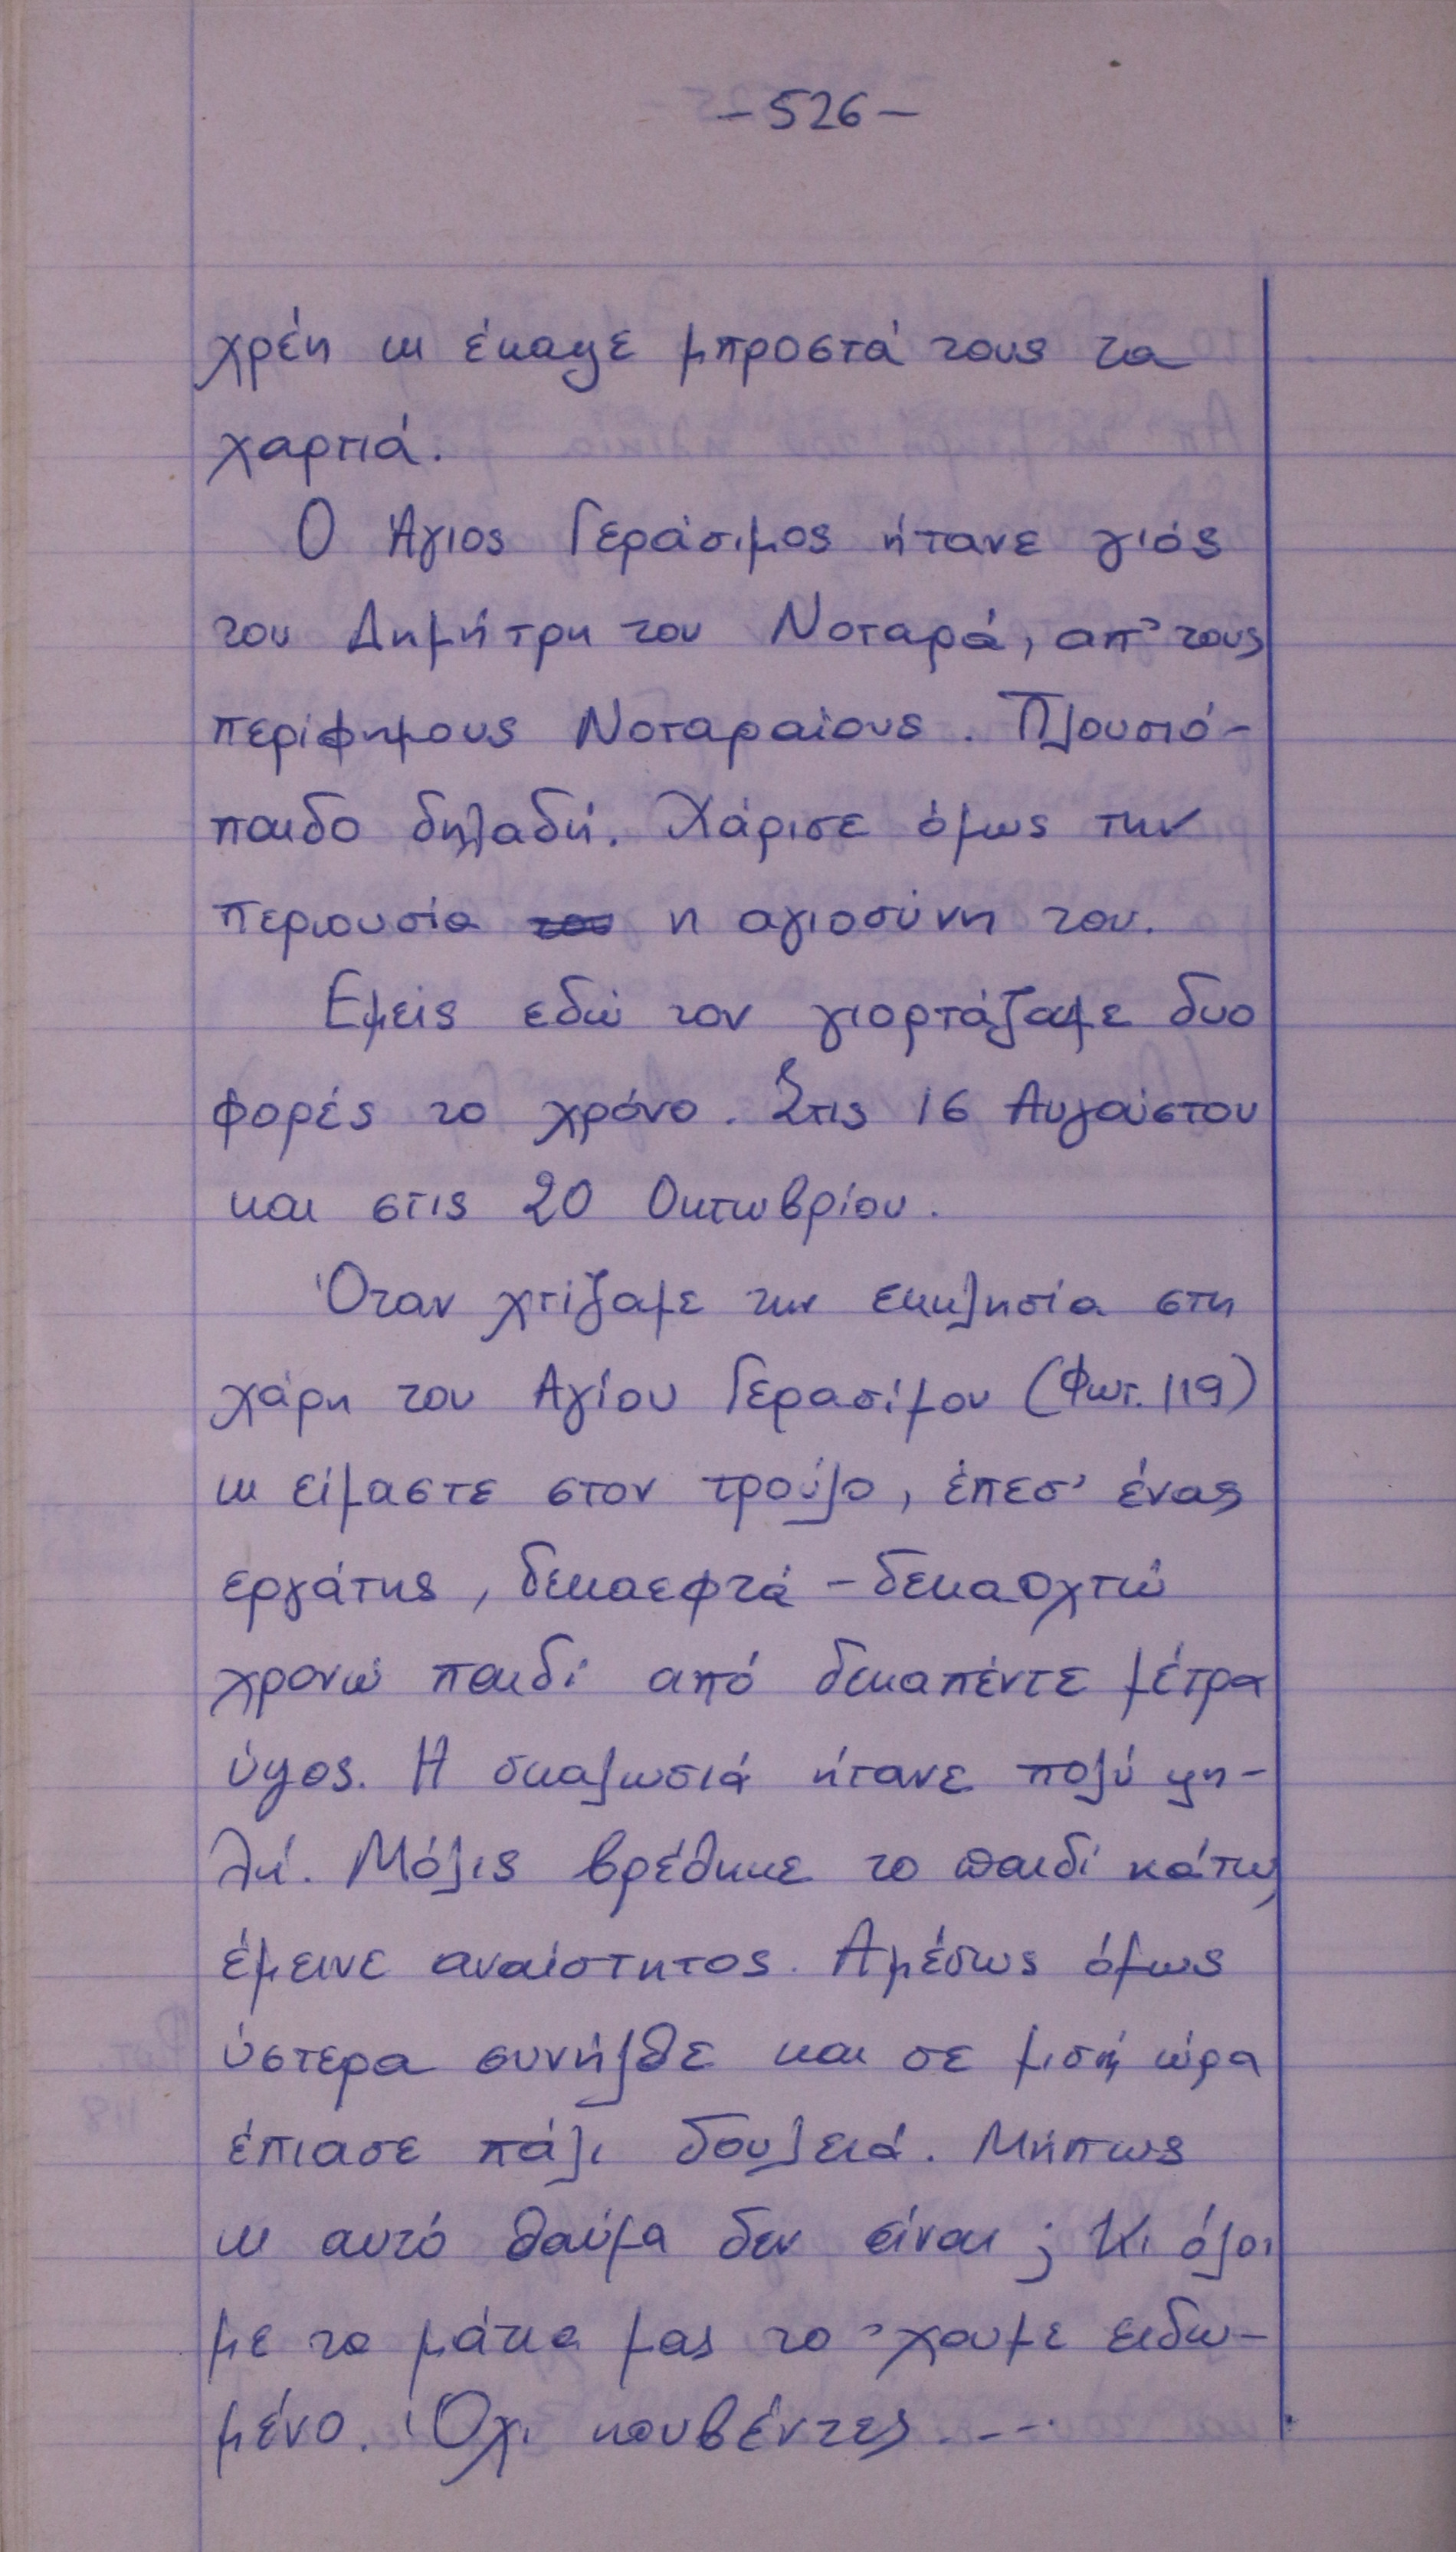 -526-
χρέη κι έκαψε μπροστά τους τα
χαρτιά.
Ο Άγιος Γεράσιμος ήτανε γιός
του Δημήτρη του Νοταρά, απ' τους
περίφημους Νοταραίους. Πλουσιό-
παιδο δηλαδή. Χάρισε όμως την
περιουσία του η αγιοσύνη του.
Εμείς εδώ τον γιορτάζαμε δυο
φορές το χρόνο. Στις 16 Αυγούστου
και στις 20 Οκτωβρίου.
Όταν χτίζαμε την εκκλησία στη
χάρη του Αγίου Γερασίμου (Φωτ. 119)
κι είμαστε στον τρούλο, έπεσ' ένας
εργάτης, δεκαεφτά - δεκαοχτώ
χρονώ παιδί από δεκαπέντε μέτρα
ύψος. Η σκαλωσιά ήτανε πολύ ψη-
λή. Μόλις βρέθηκε το παιδί κάτω,
έμεινε αναίστητος. Αμέσως όμως
ύστερα συνήλθε και σε μισή ώρα
έπιασε πάλι δουλειά. Μήπως
κι αυτό θαύμα δεν είναι; Κι όλοι
με τα μάτια μας το 'χουμε ειδω-
μένο. Όχι κουβέντες...